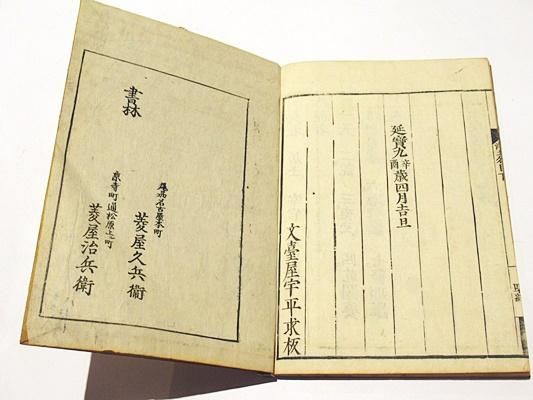 延寶九辛酉歳四月吉旦
文臺屋宇平求板
書林
名古屋本町
菱屋久兵衞
京寺町通松原上ル町
菱屋治兵衛